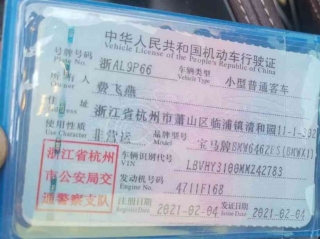 中华人民共和国机动车行驶证
Vehicle License of the People's Republic of China
号牌号码 浙AL9P66 车辆类型 小型普通客车
Plate No. Vehicle Type
所有人 费飞燕
Owner
住址 浙江省杭州市萧山区临浦镇清和园11-1-302
Address
使用性质 非营运 品牌型号 宝马牌BMW6462ES(BMWX1)
Use Character Model
浙江省杭州市公安局交通警察支队
车辆识别代号 LBVHY3100MMZ42783
VIN
发动机号码 4711F168
Engine No.
注册日期 2021-02-04 发证日期 2021-02-04
Register Date Issue Date